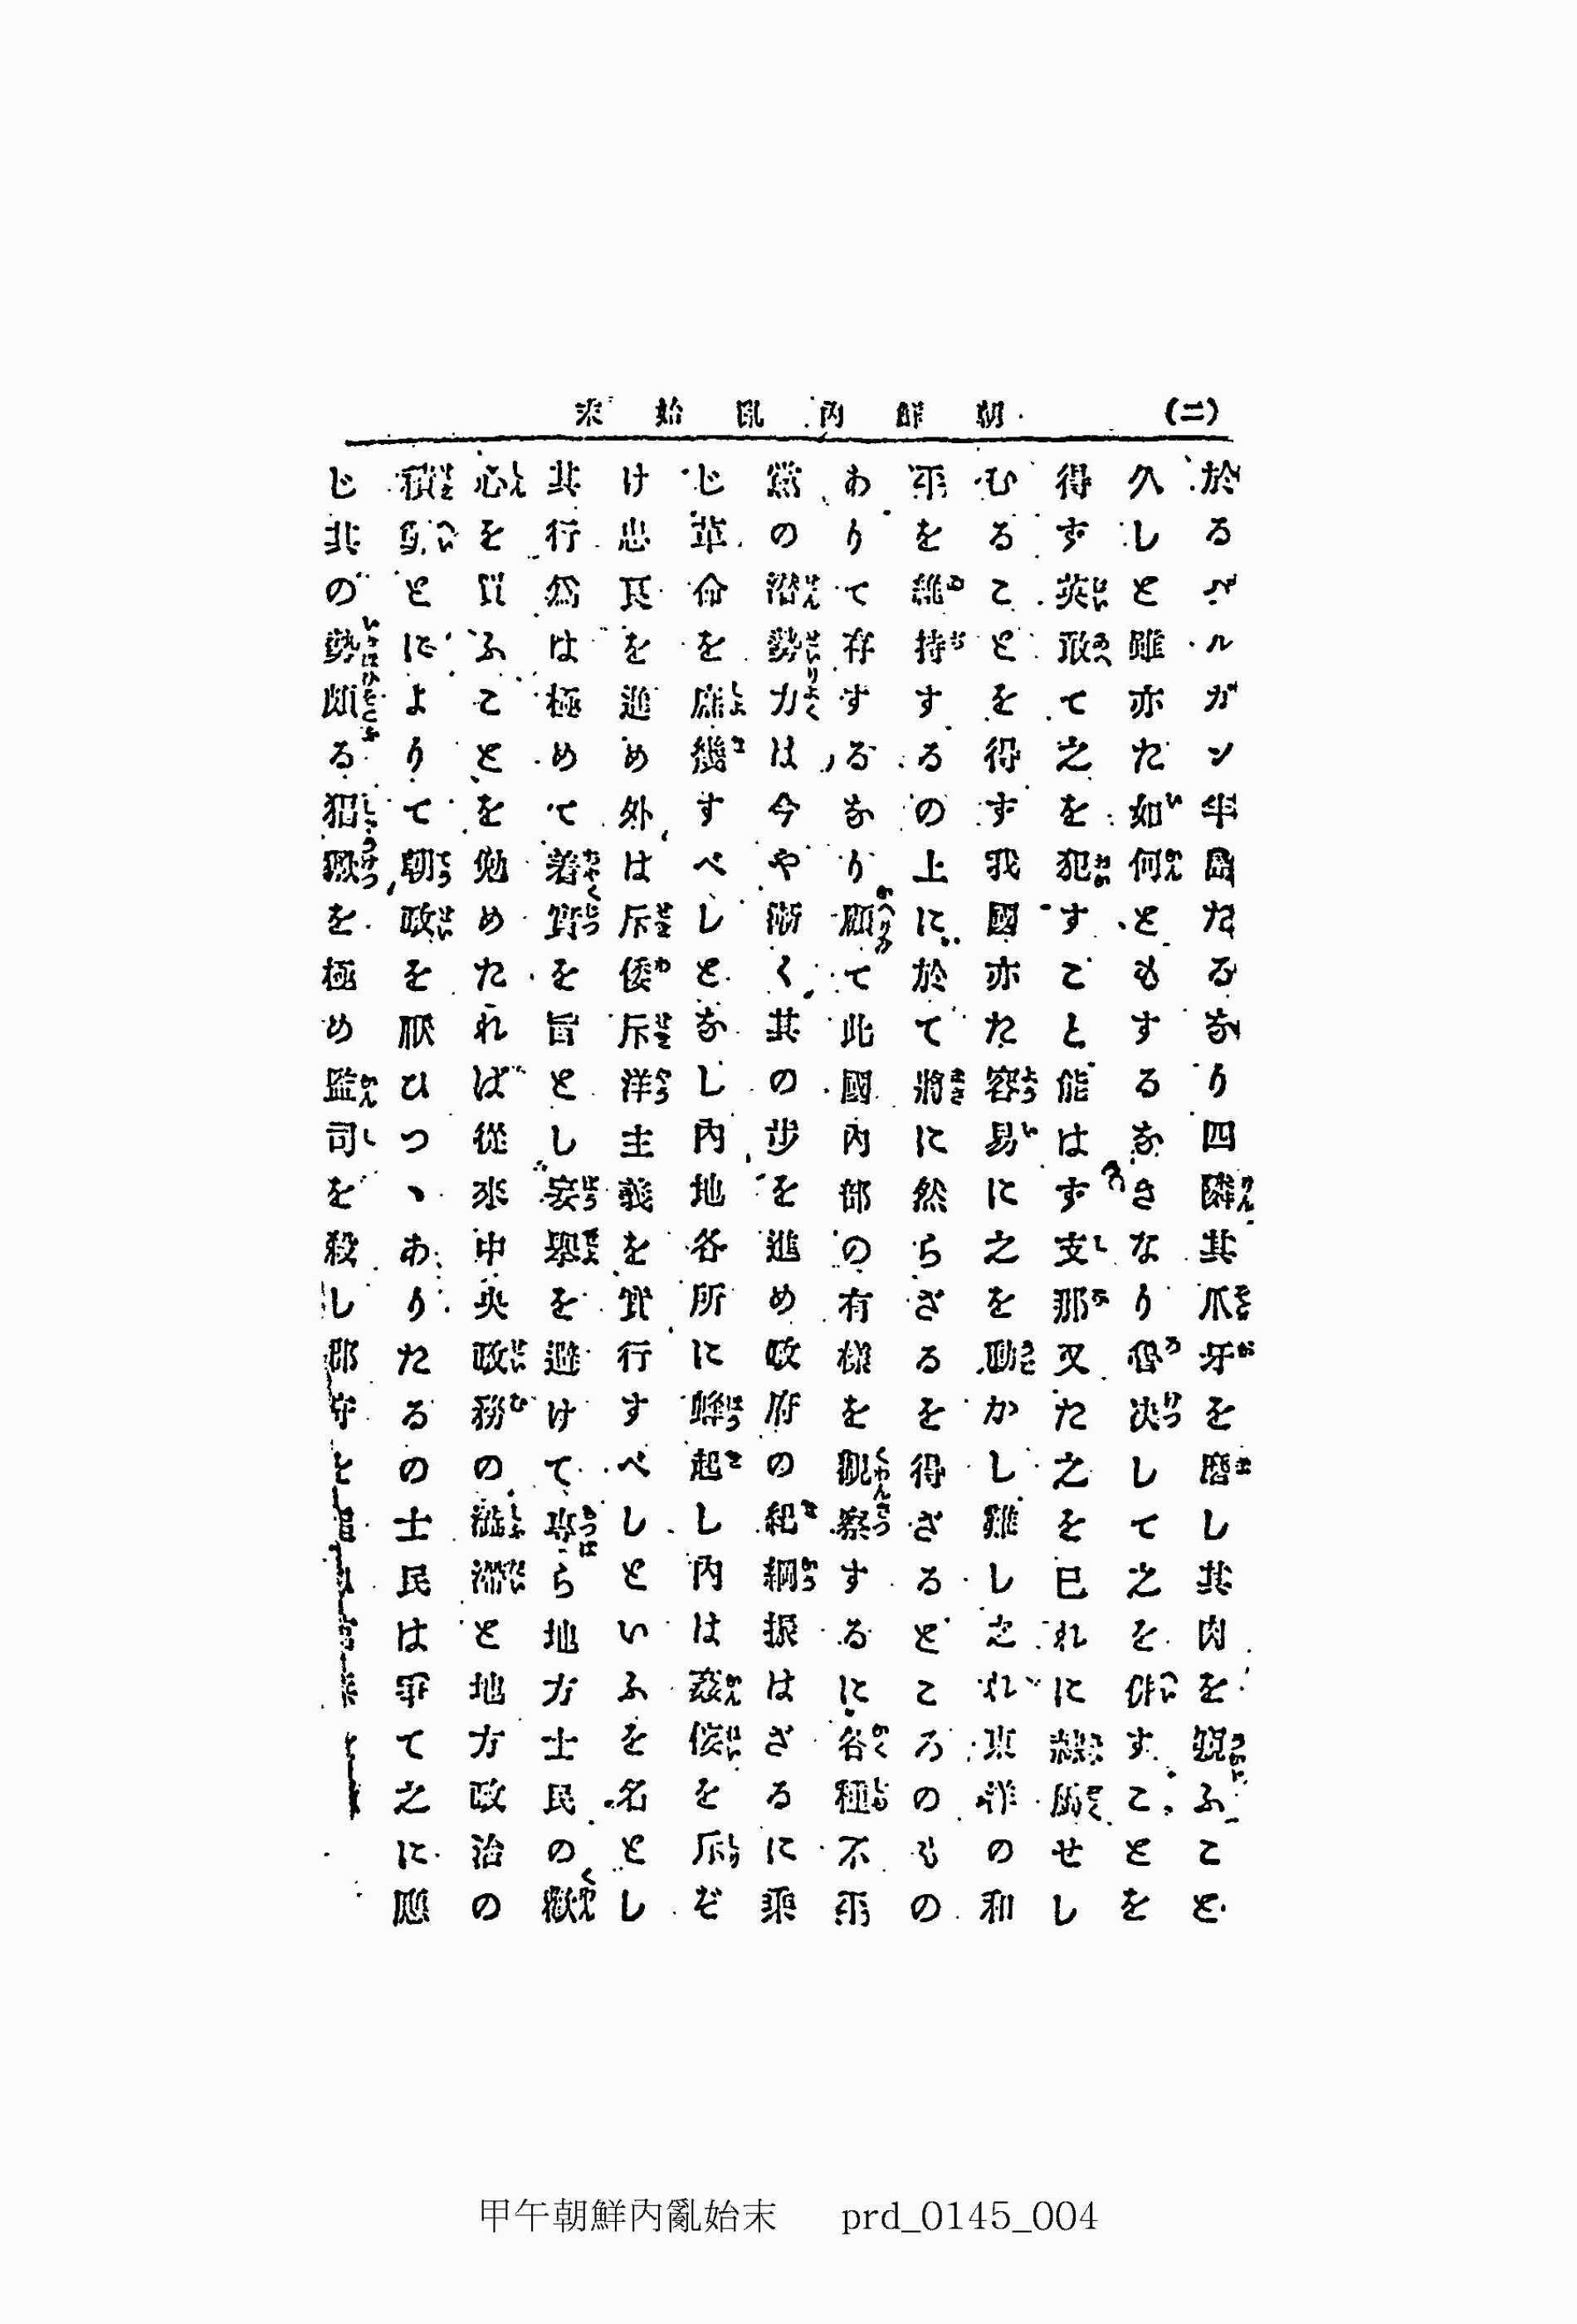 (二)　朝鮮内亂始末
於るバルガン半島たるなり四隣其爪牙を磨し其肉を窺ふこと
久しと雖亦た如何ともするなきなり魯决して之を併すことを
得ず英敢て之を犯すこと能はず支那又た之を已れに隷屬せし
むることを得ず我國亦た容易に之を動かし難し之れ東洋の和
平を維持するの上に於て將に然らざるを得ざるところのもの
ありて存するなり顧て此國内部の有樣を觀察するに各種不平
黨の潜勢力は今や漸く其の歩を進め政府の紀綱振はざるに乘
じ革命を庶幾すべしとなし内地各所に蜂起し内は姦佞を斥ぞ
け忠良を進め外は斥倭斥洋主義を實行すべしといふを名とし
其行爲は極めて着實を旨とし妄擧を避けて專ら地方士民の歡
心を買ふことを勉めたれば從來中央政務の澁滯と地方政治の
積弊とによりて朝政を厭ひつゝありたるの士民は擧て之に應
じ其の勢頗る猖獗を極め監司を殺し郡守と
甲午朝鮮內亂始末　prd_0145_004